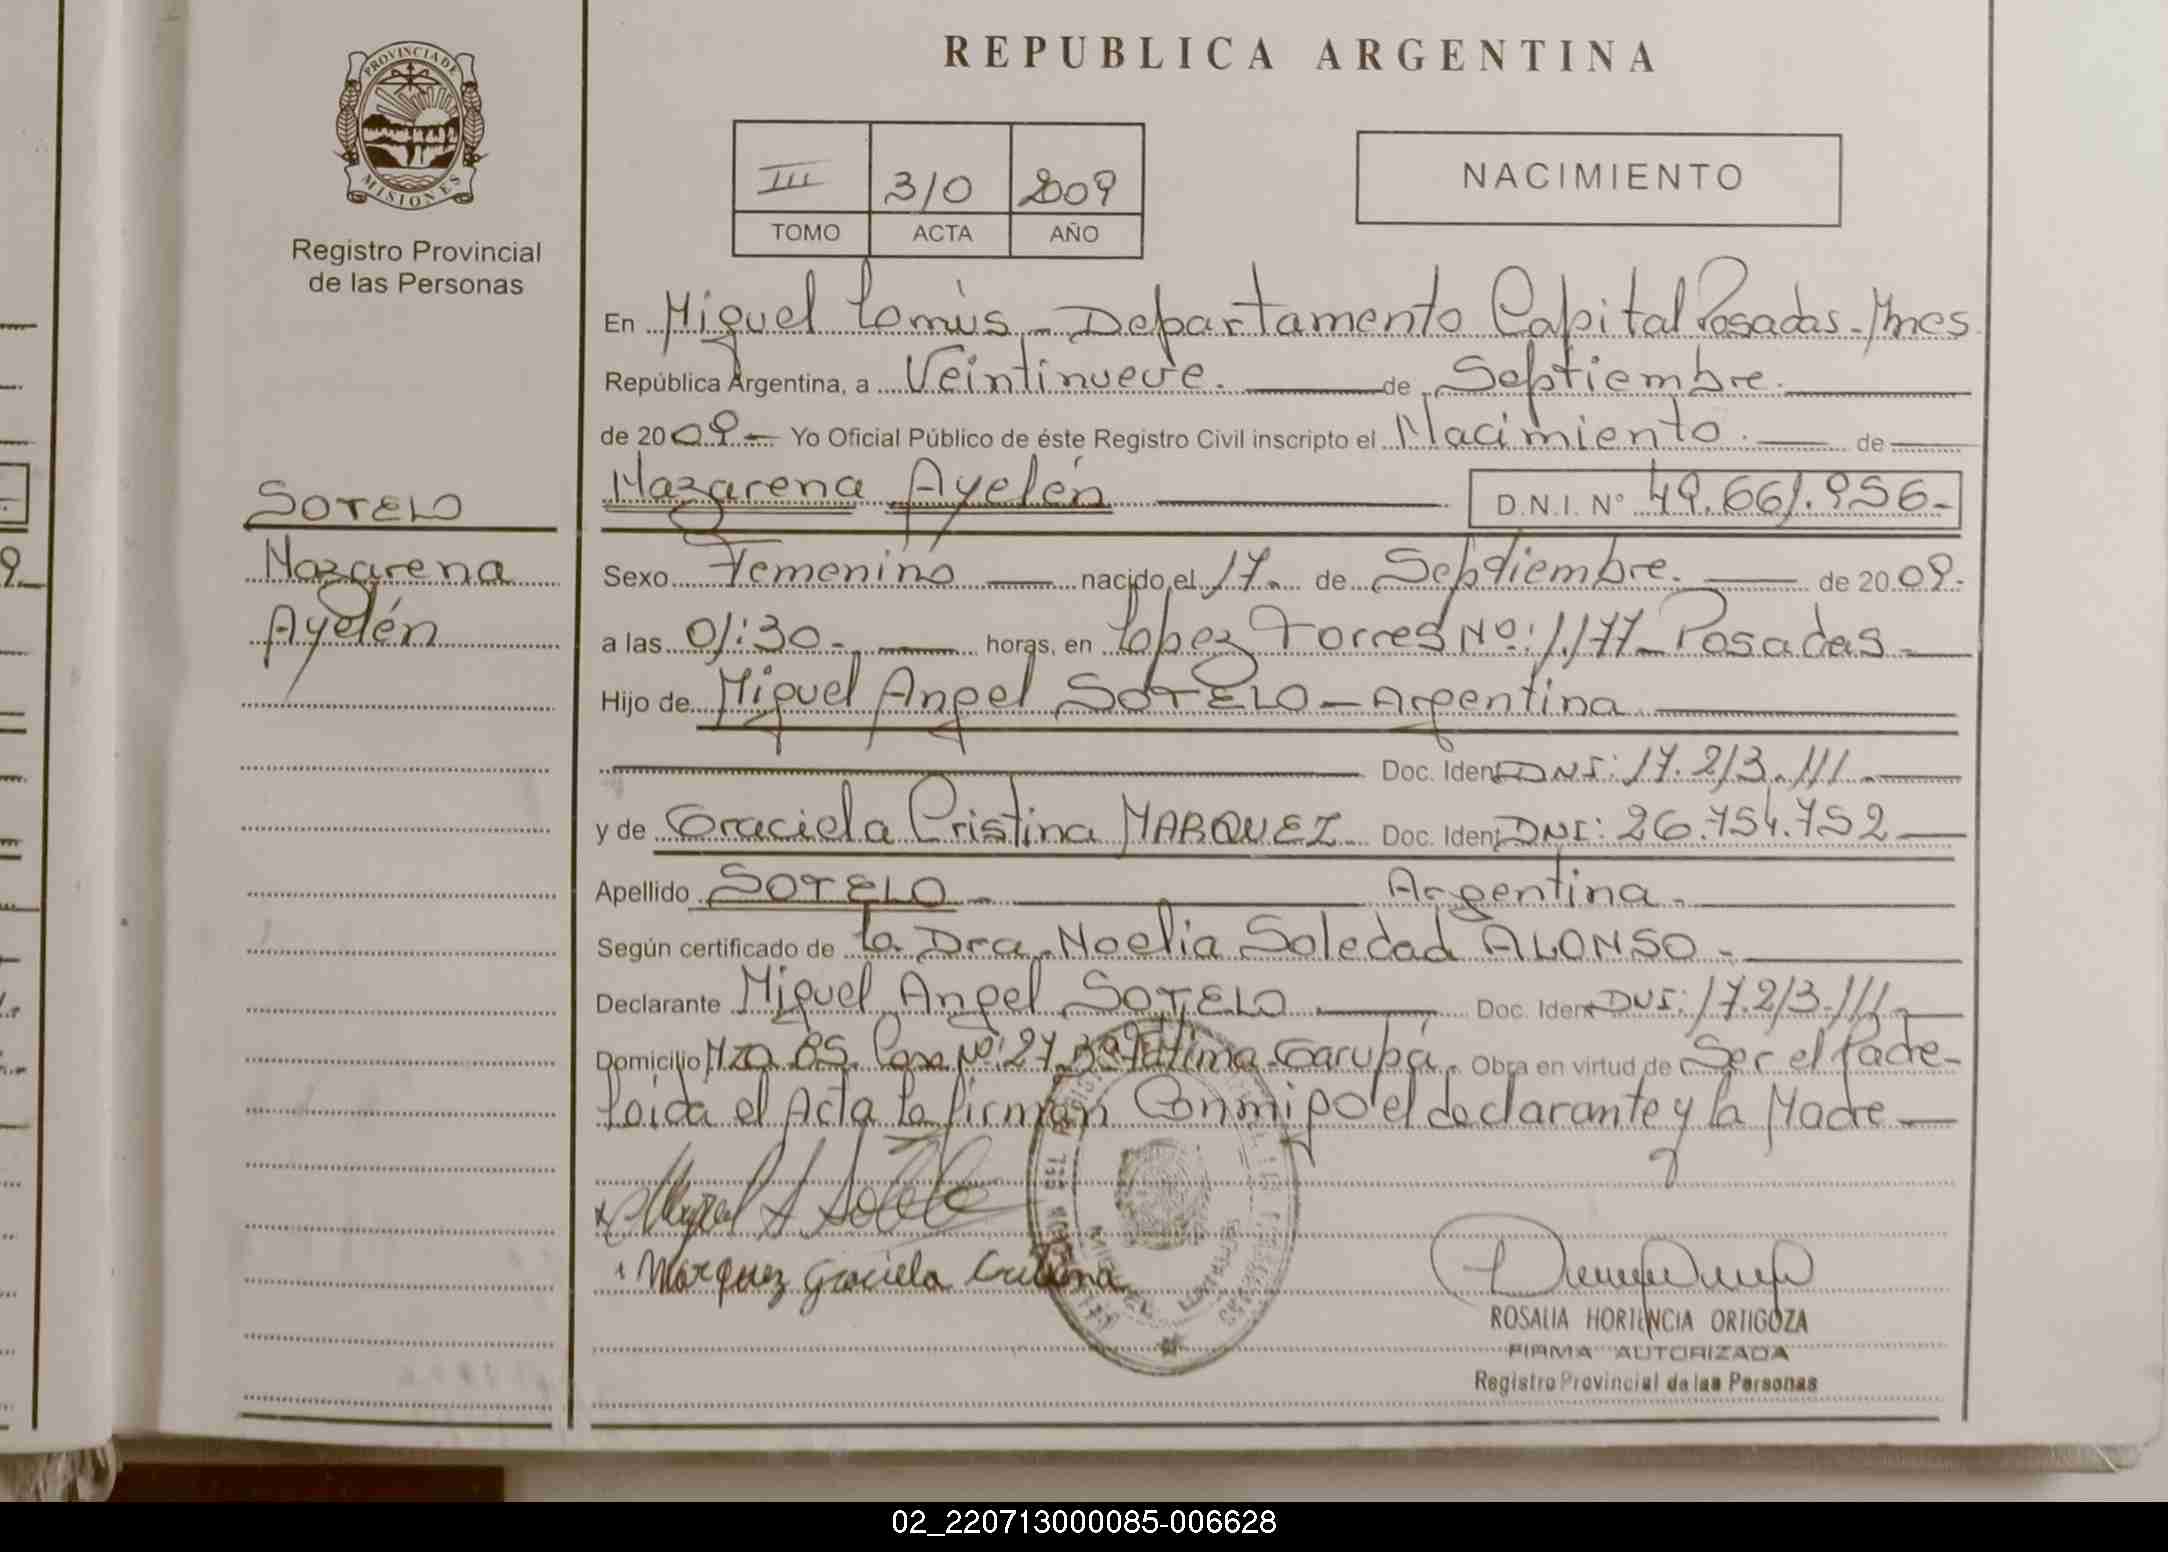 PROVINCIA DE
MISIONES
Registro Provincial
de las Personas
REPUBLICA ARGENTINA
III 310 2009
TOMO ACTA AÑO
NACIMIENTO
En Miguel Lanús - Departamento Capital Posadas - Mnes
República Argentina, a Veintinueve. de Septiembre.
de 2009 - Yo Oficial Público de éste Registro Civil inscripto el Nacimiento. de
SOTELO
Nazarena
Ayelén
Nazarena Ayelén D.N.I. Nº 49.661.956-
Sexo Femenino nacido el 17. de Septiembre. de 2009.
a las 01:30 - horas, en López Torres Nº: 1177 - Posadas -
Hijo de Miguel Angel SOTELO - Argentina
Doc. Ident DNI: 17.213.111 -
y de Graciela Cristina MARQUEZ Doc. Ident DNI: 26.754.752
Apellido SOTELO - Argentina -
Según certificado de la Dra. Noelia Soledad ALONSO -
Declarante Miguel Angel SOTELO Doc. Ident DNI: 17.213.111 -
Domicilio Mza Casa Nº: 27 Bº Fátima - Garupá. Obra en virtud de Ser el Padre -
Leída el Acta la firman Conmigo el declarante y la Madre
Miguel A Sotelo
Marquez Graciela Cristina
ROSALIA HORTENCIA ORTIGOZA
FIRMA AUTORIZADA
Registro Provincial de las Personas
02_220713000085-006628